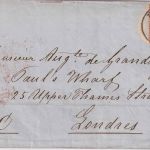 Monsieur Augte. de Grand
Paul's Wharf
25 Upper Thames Str
Londres